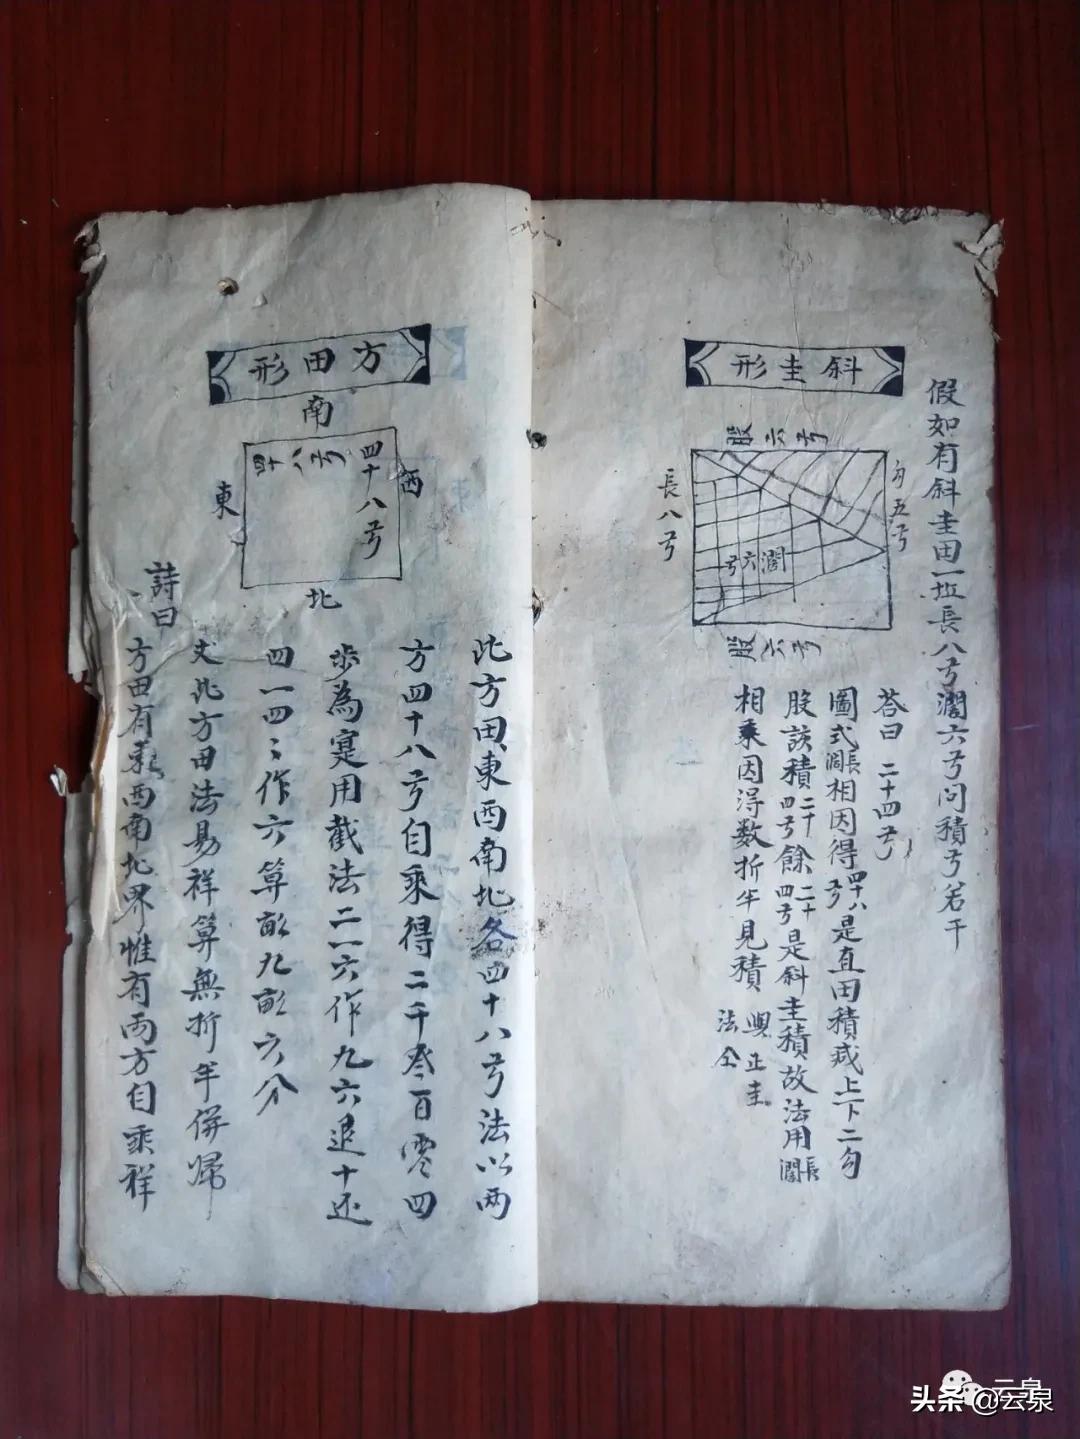 斜圭形
假如有斜圭田一坵長八弓濶六弓問積弓若干
股六弓
勾五弓
長八弓
濶六弓
股六弓
答曰 二十四弓
圖式濶長相因得四十八弓是直田積減上下二勾
股該積二十四弓餘二十四弓是斜圭積故法用長濶
相乘因得數折半見積 與正圭法仝
方田形
南
四十八弓
四十八弓
西
東
北
此方田東西南北各四十八弓法以兩
方四十八弓自乘得二千叁百零四
步為寔用截法二一六作九六退十还
四一四〻作六算畝九畝六分
丈此方田法易祥算無折半併歸
詩曰
方田有東西南北界惟有兩方自乘祥
头条@云泉
云泉